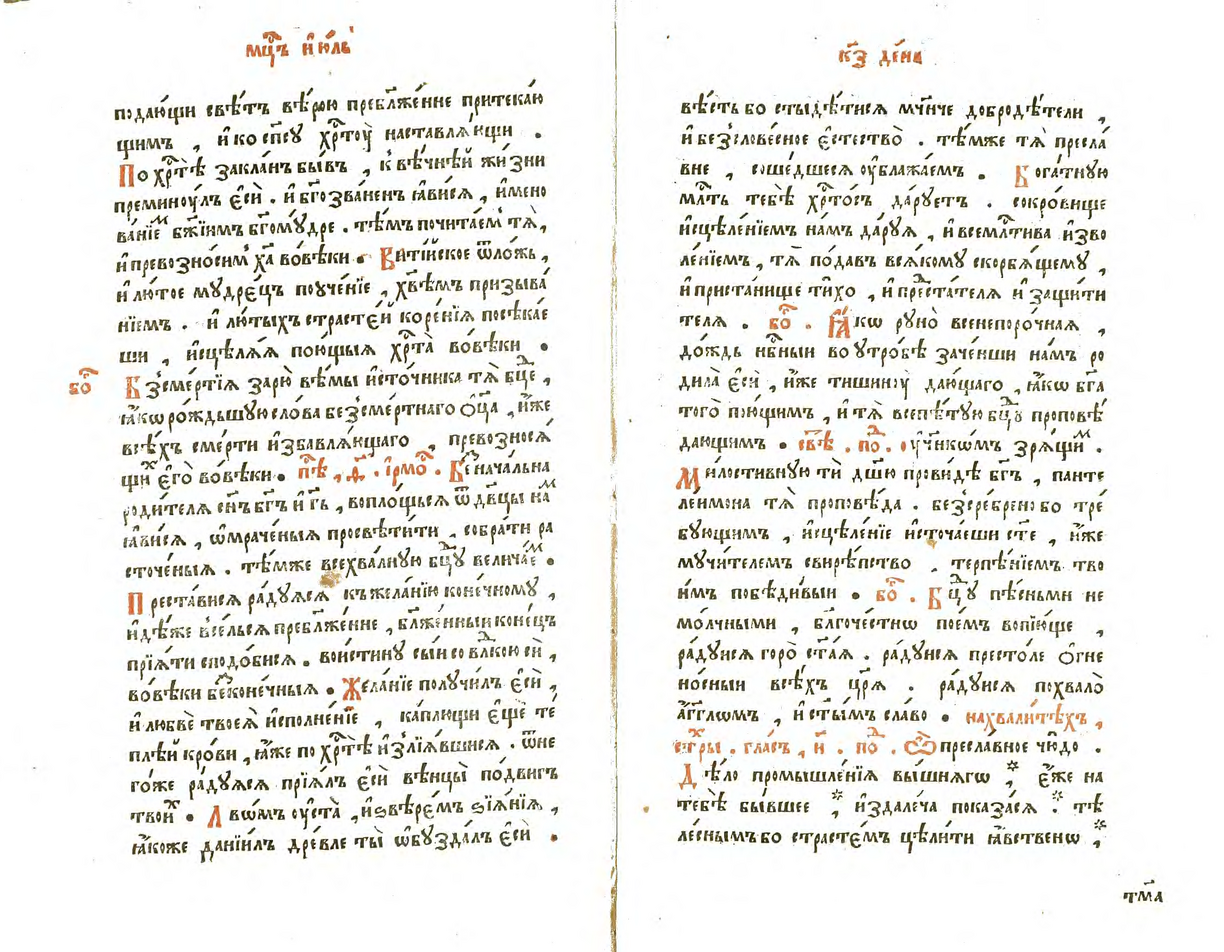 мц҃ъ і҆ю́ль
подаю́щи свѣ́тъ вѣ́рою пребл҃же́нне притекаю
щимъ , и҆ ко сп҃су хрⷭ҇тоу̀ наставлѧ́ющи .
По хрⷭ҇тѣ̀ закла́нъ бы́въ , к вѣ́чнѣй жи́зни
преминоу́лъ є҆сѝ . и҆ бг҃озва́ненъ ꙗ҆ви́сѧ , и҆мено
ва́нїеⷨ бж҃їимъ бг҃ому́дре . тѣ́мъ почита́ем тѧ̀ ,
и҆ превозно́сим хаⷭ҇ во вѣ́ки . Вити́йское ѿло́жь ,
и҆ лю́тое мудре́цъ поуче́нїе , хв҃ѣмъ призыва́
нїемъ . и҆ лю́тыхъ страсте́й коре́нїѧ посѣка́е
ши , и҆сцѣлѧ́ѧ пою́щыѧ хрⷭ҇та̀ во вѣ́ки .
боⷢ҇
Безсме́ртїѧ зарю̀ вѣ́мы и҆сто́чника тѧ̀ бц҃е ,
ꙗ҆́кѡ ро́ждьшую сло́ва безсме́ртнаго ѻ҆ц҃а̀ , и҆́же
всѣ́хъ сме́рти и҆збавлѧ́ющаго , превозносѧ́
щиⷯ є҆го̀ во вѣ́ки . пѣⷭ҇ , д҃ . і҆рмоⷭ҇ . Безнача́льна
роди́телѧ сн҃ъ бг҃ъ и҆ гⷭ҇ь , вопло́щьсѧ ѿ дв҃цы наⷨ
ꙗ҆ви́сѧ , ѡ҆мраче́ныѧ просвѣти́ти , собра́ти ра
сточе́ныѧ . тѣ́мже всехва́лную бцⷣу велича́еⷨ .
Преста́висѧ ра́дуѧсѧ къ жела́нїю коне́чному ,
и҆дѣ́же всели́лсѧ пребл҃же́нне , бл҃же́нныи коне́цъ
прїѧ́ти сподо́бисѧ . вои́стину сы́и со влⷣкою сѝ ,
во вѣ́ки безконе́чныѧ . Жела́нїе получи́лъ є҆сѝ ,
и҆ любвѐ твоеѧ̀ и҆сполне́нїе , ка́плющи є҆щѐ те́
плѣй кро́ви , ꙗ҆́же по хрⷭ҇тѣ̀ и҆злїѧ́вшисѧ . ѿне
го́же ра́дуѧсѧ прїѧ́лъ є҆сѝ вѣнцы̀ по́двигъ
твоиⷯ . Львѡ́мъ оу҆ста̀ , и҆ ѕвѣре́мъ ѕїѧ́нїѧ ,
ꙗ҆́коже данїи́лъ дре́вле ты̀ ѡ҆бузда́лъ є҆сѝ .
к҃з де́нь
вѣ́сть бо стыдѣ́тисѧ мч҃нче добродѣ́тели ,
и҆ безслове́сное є҆стество̀ . тѣ́мже тѧ̀ пресла́
вне , соше́дшесѧ оу҆блажа́емъ . Бога́тную
млⷭ҇ть тебѣ̀ хрⷭ҇то́съ да́руетъ . сокро́вище
и҆сцѣле́нїемъ на́мъ да́руѧ , и҆ всемлⷭ҇тива и҆зво
ле́нїемъ , тѧ̀ пода́въ всѧ́кому скорбѧ́щему ,
и҆ приста́нище ти́хо , и҆ предста́телѧ и҆ защи́ти
телѧ . боⷢ҇ . Ꙗ҆́кѡ руно̀ всенепоро́чнаѧ ,
до́ждь нбⷭ҇ныи во утро́бѣ заче́нши на́мъ ро
дила̀ є҆сѝ , и҆́же тишину̀ даю́щаго , ꙗ҆́кѡ бг҃а
того̀ пою́щимъ , и҆ тѧ̀ всепѣ́тую бцⷣу проповѣ́
дающимъ . свѣⷮ . поⷣ . оу҆ч҃нкѡмъ зрѧ́щиⷨ .
Ми́лостивную тѝ дш҃ю прови́дѣ бг҃ъ , панте
леи́мона тѧ̀ проповѣ́да . безсре́брено бо тре́
бующимъ , и҆сцѣле́нїе и҆сточа́еши ст҃е , и҆́же
мучи́телемъ свирѣ́пство терпѣ́нїемъ тво
и҆́мъ побѣди́выи . боⷢ҇ . Бцⷣу пѣ́сньми не
мо́лчными , бл҃гоче́стнѡ пое́мъ вопїю́ще ,
ра́дуисѧ горо̀ ст҃а́ѧ . ра́дуисѧ престо́ле ѻ҆́гне
но́сныи всѣ́хъ цр҃ѧ̀ . ра́дуисѧ похвало̀
а҆́гг҃лѡмъ , и҆ ст҃ы́мъ сла́во . на хвали́техъ ,
стх҃ры . гла́съ , и҃ . поⷣ . Ѽ пресла́вное чю́до .
Дѣ́ло промышле́нїѧ вы́шнѧгѡ , є҆́же на
тебѣ̀ бы́вшее , и҆здале́ча показа́сѧ . тѣ
ле́снымъ бо страсте́мъ цѣли́ти ꙗ҆́вственѡ ,
тм҃а